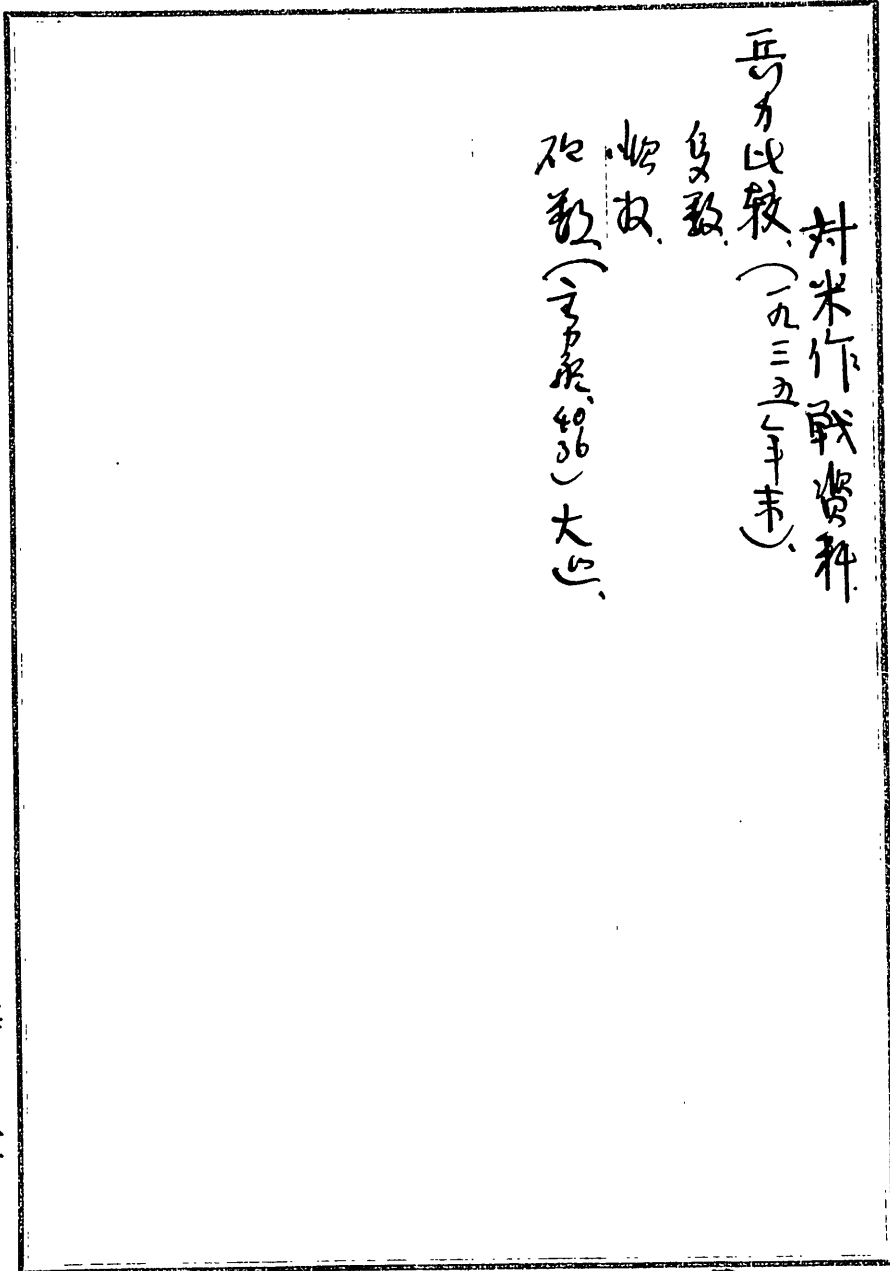 対米作戦資料
兵力比較、(一九三五年末)、
隻数、
噸数、
砲数、(主力艦、40 36)大小、